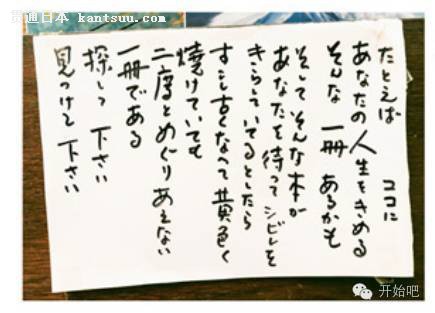 贯通日本 kantsuu.com
たとえば ココに
あなたの人生をきめる
そんな 一冊 あるかも
そして そんな本が
あなたを待って シビレを
きらしているとしたら
すこし古くなって黄色く
焼けていても
二度とめぐりあえない
一冊である
探して 下さい
見つけて 下さい
开始吧